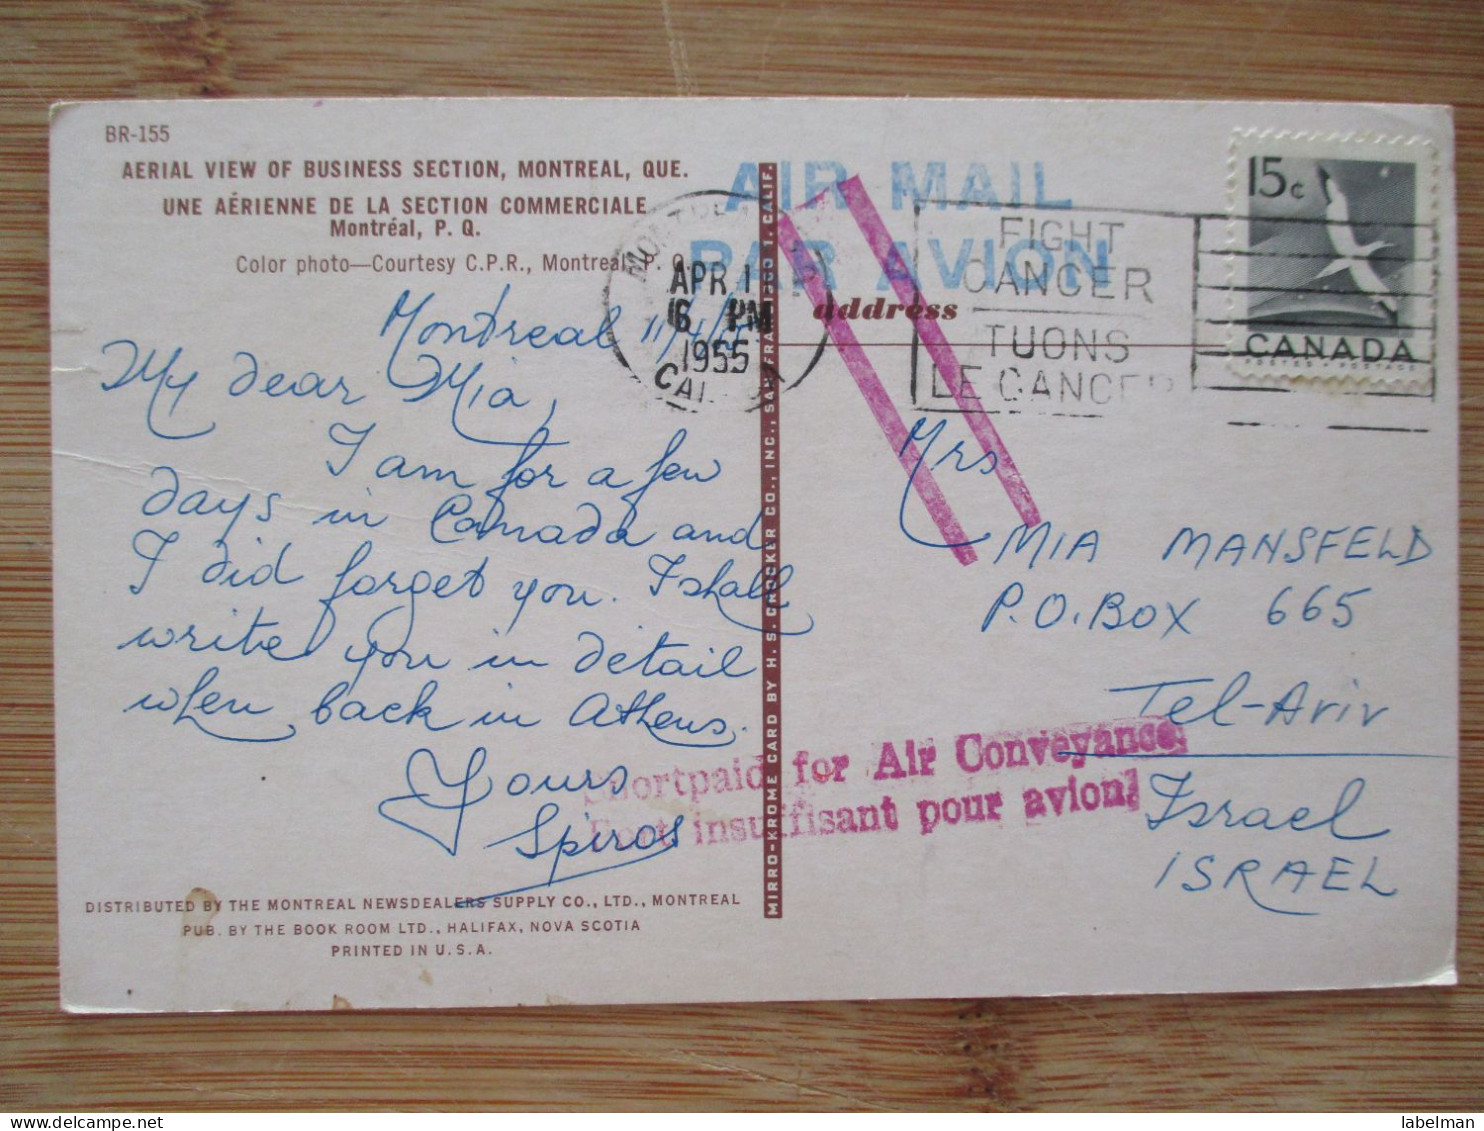 BR-155
AERIAL VIEW OF BUSINESS SECTION, MONTREAL, QUE.
UNE AÉRIENNE DE LA SECTION COMMERCIALE
Montréal, P. Q.
Color photo—Courtesy C.P.R., Montreal, P. Q.
AIR MAIL
PAR AVION
APR 1
6 PM
1955
FIGHT
CANCER
TUONS
LE CANCER
15¢
CANADA
POSTES · POSTAGE
address
Montreal 11/4/
My dear Mia,
I am for a few
days in Canada and
I did forget you. I shall
write you in detail
when back in Athens.
Yours
Spiros
Mrs
MIA MANSFELD
P.O.BOX 665
Tel-Aviv
Israel
ISRAEL
Shortpaid for Air Conveyance
Port insuffisant pour avion
MIRRO-KROME CARD BY H. S. CROCKER CO., INC., SAN FRANCISCO 1, CALIF.
DISTRIBUTED BY THE MONTREAL NEWSDEALERS SUPPLY CO., LTD., MONTREAL
PUB. BY THE BOOK ROOM LTD., HALIFAX, NOVA SCOTIA
PRINTED IN U.S.A.
labelman
delcampe.net